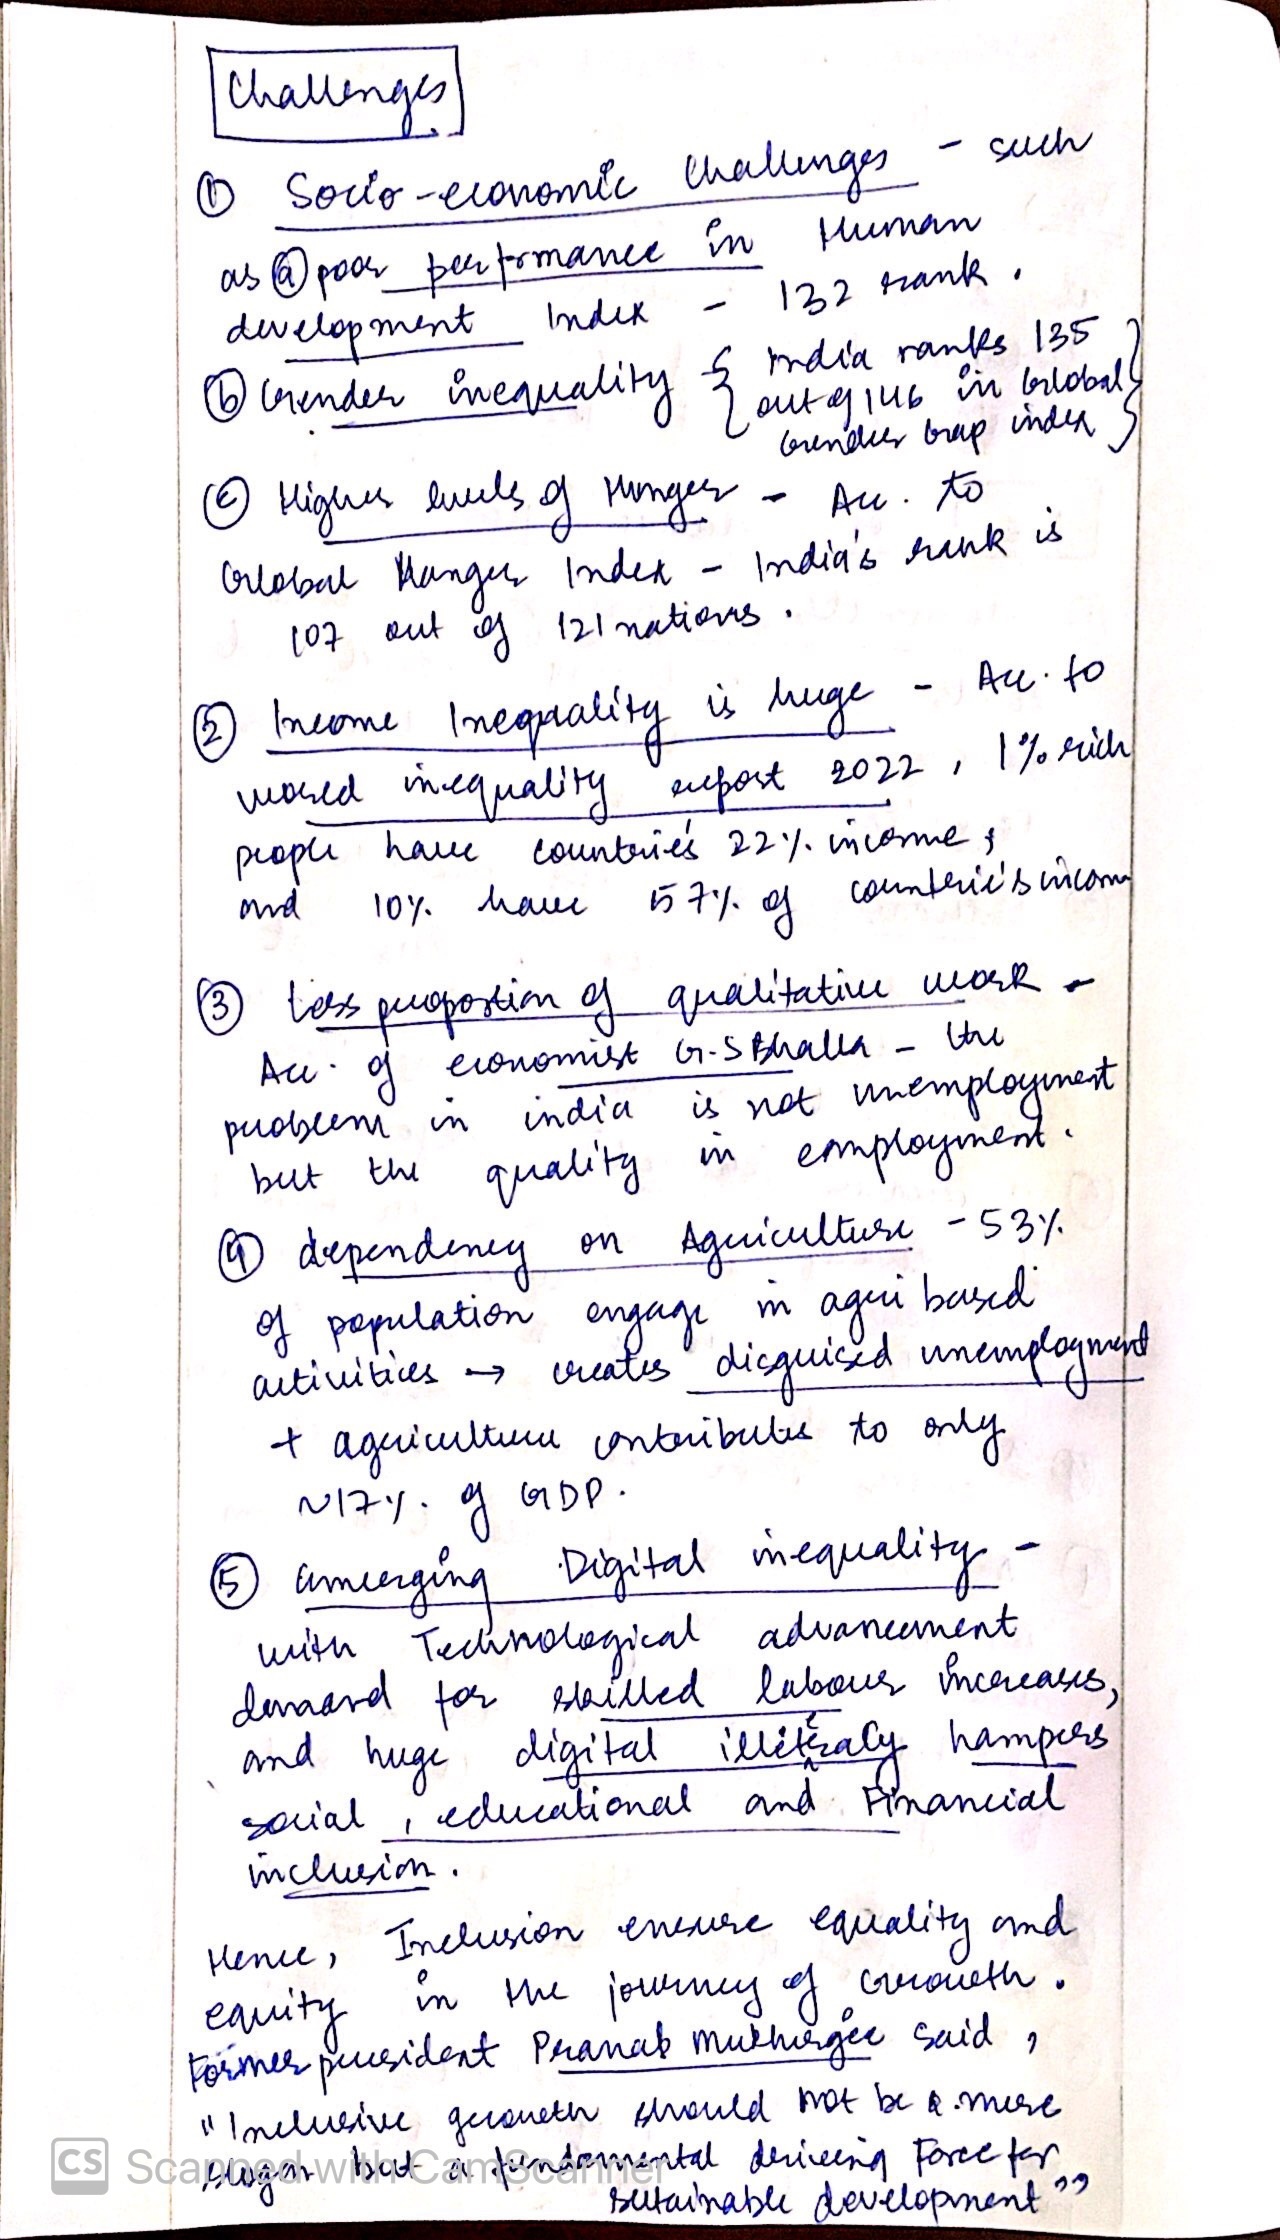 Challenges
① Socio-economic Challenges - such
as ⓐ poor performance in Human
development Index - 132 rank.
ⓑ Gender inequality - { India ranks 135
out of 146 in Global
Gender Gap index }
ⓒ Higher levels of Hunger - Acc. to
Global Hunger Index - India's rank is
107 out of 121 nations.
② Income Inequality is huge - Acc. to
world inequality report 2022, 1% rich
people have countrie's 22% income,
and 10% have 57% of countrie's income
③ Less proportion of qualitative work -
Acc. of economist G.S Bhalla - the
problem in india is not unemployment
but the quality in employment.
④ dependency on Agriculture - 53%
of population engage in agri based
activities → creates disguised unemployment
+ agriculture contributes to only
~17% of GDP.
⑤ emerging Digital inequality -
with Technological advancement
demand for skilled labour increases,
and huge digital illiteracy hampers
social, educational and Financial
inclusion.
Hence, Inclusion ensure equality and
equity in the journey of Growth.
Former president Pranab Mukherjee said,
"Inclusive growth should not be a mere
slogan but a fundamental driving Force for
sustainable development"
CS Scanned with CamScanner